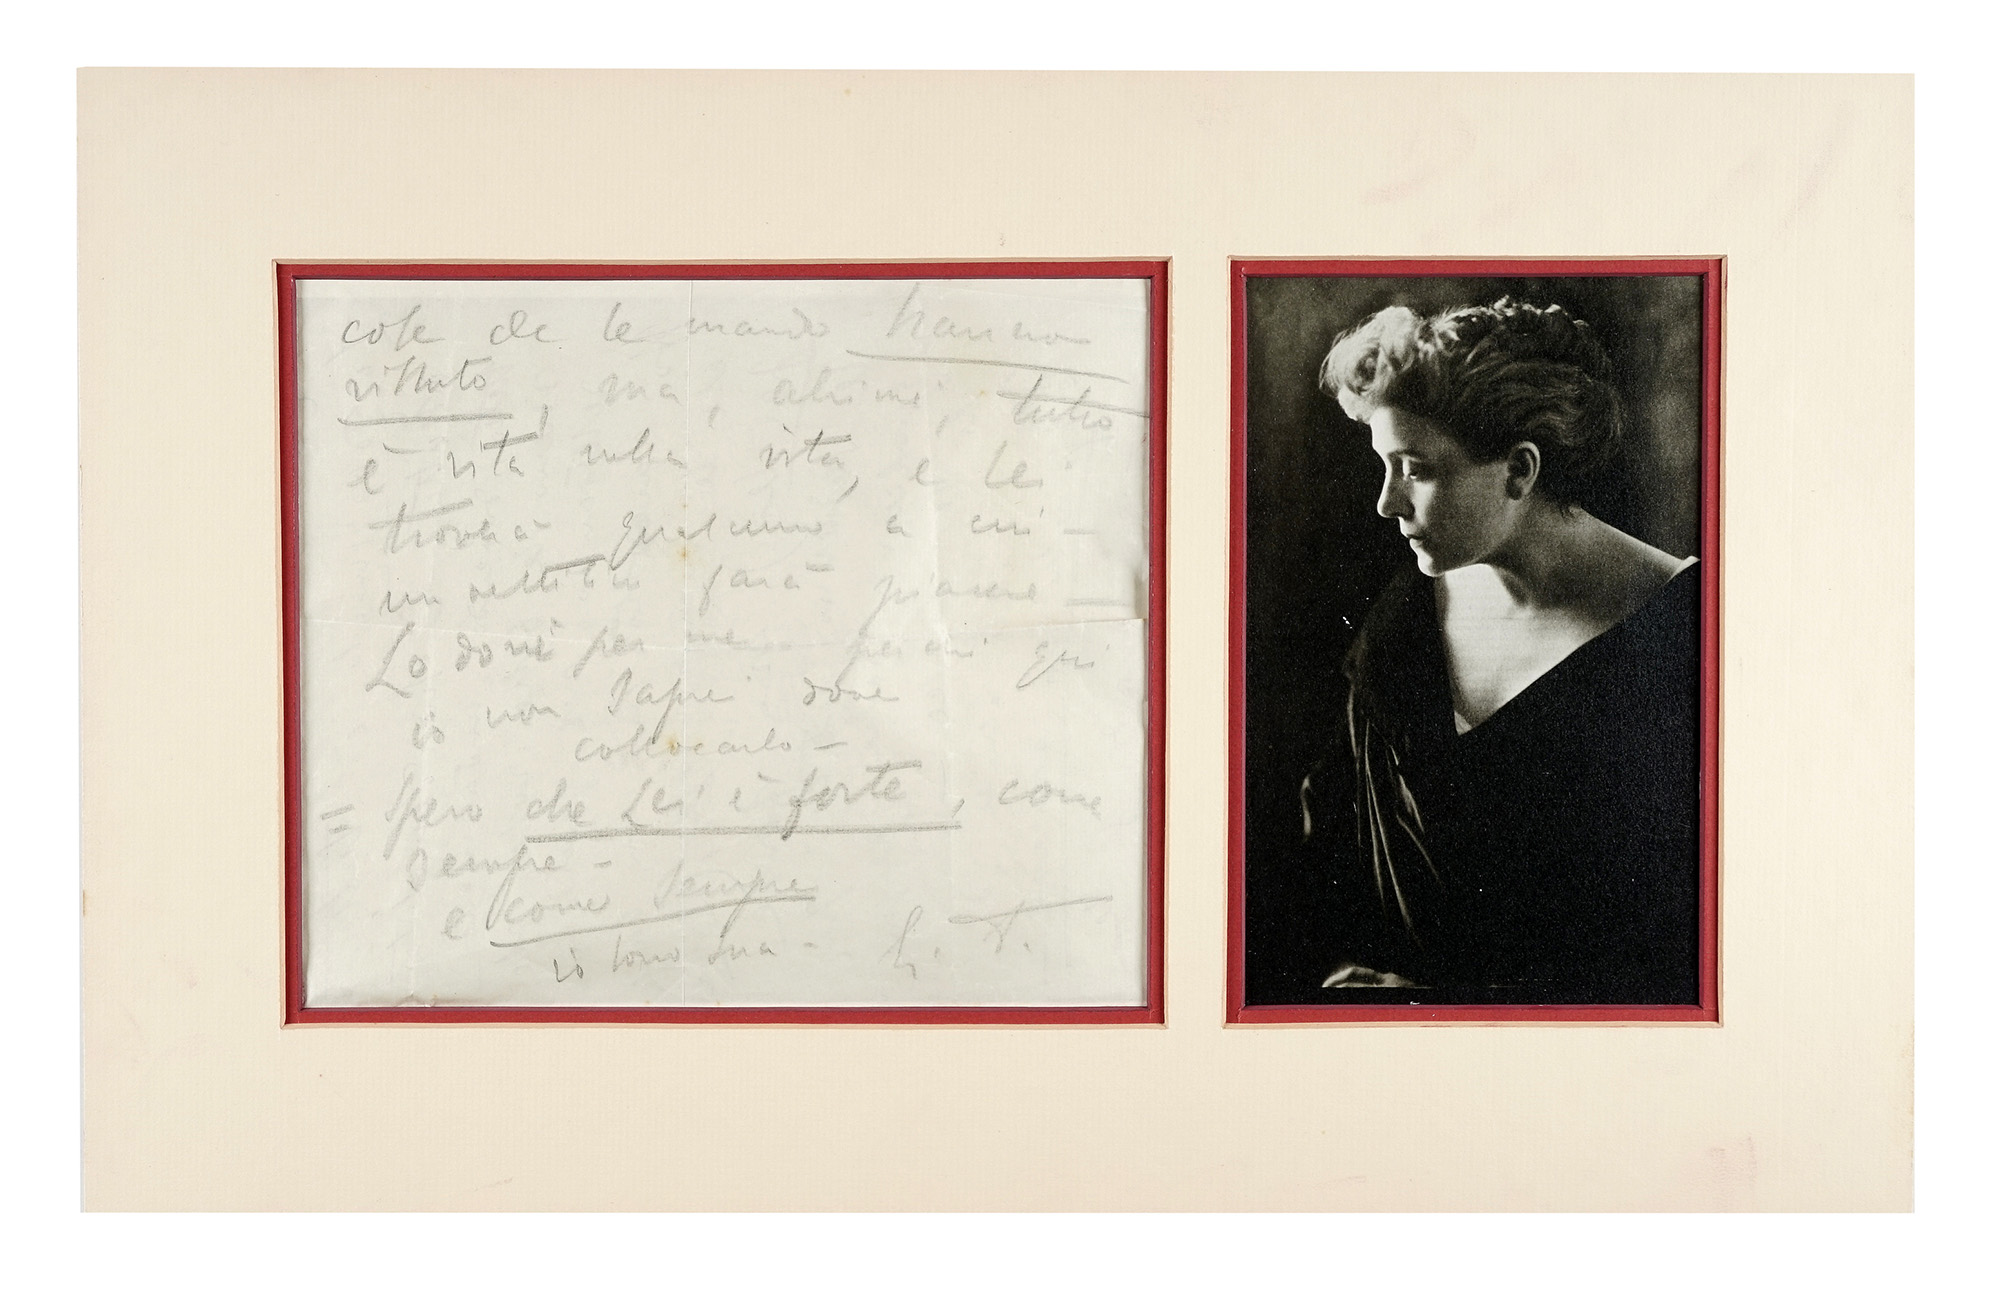 cose che le mando hanno
vissuto, ma, ahimè, tutto
è vita nella vita, e Lei
troverà qualcuno a cui –
un vestitino farà piacere –
Lo doni per me – perché qui
io non saprei dove
collocarlo –
= Spero che Lei è forte, come
sempre –
e come sempre
io sono sua –